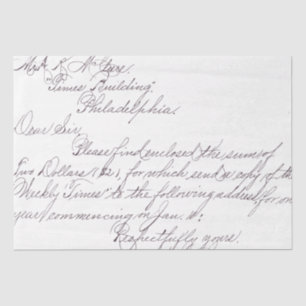 Mr. A. K. McClure.
"Times Building",
Philadelphia.
Dear Sir,
Please find enclosed the sum of
Two Dollars ($2), for which send a copy of the
Weekly "Times" to the following address for one
year, commencing on Jan. 1:
Respectfully yours.